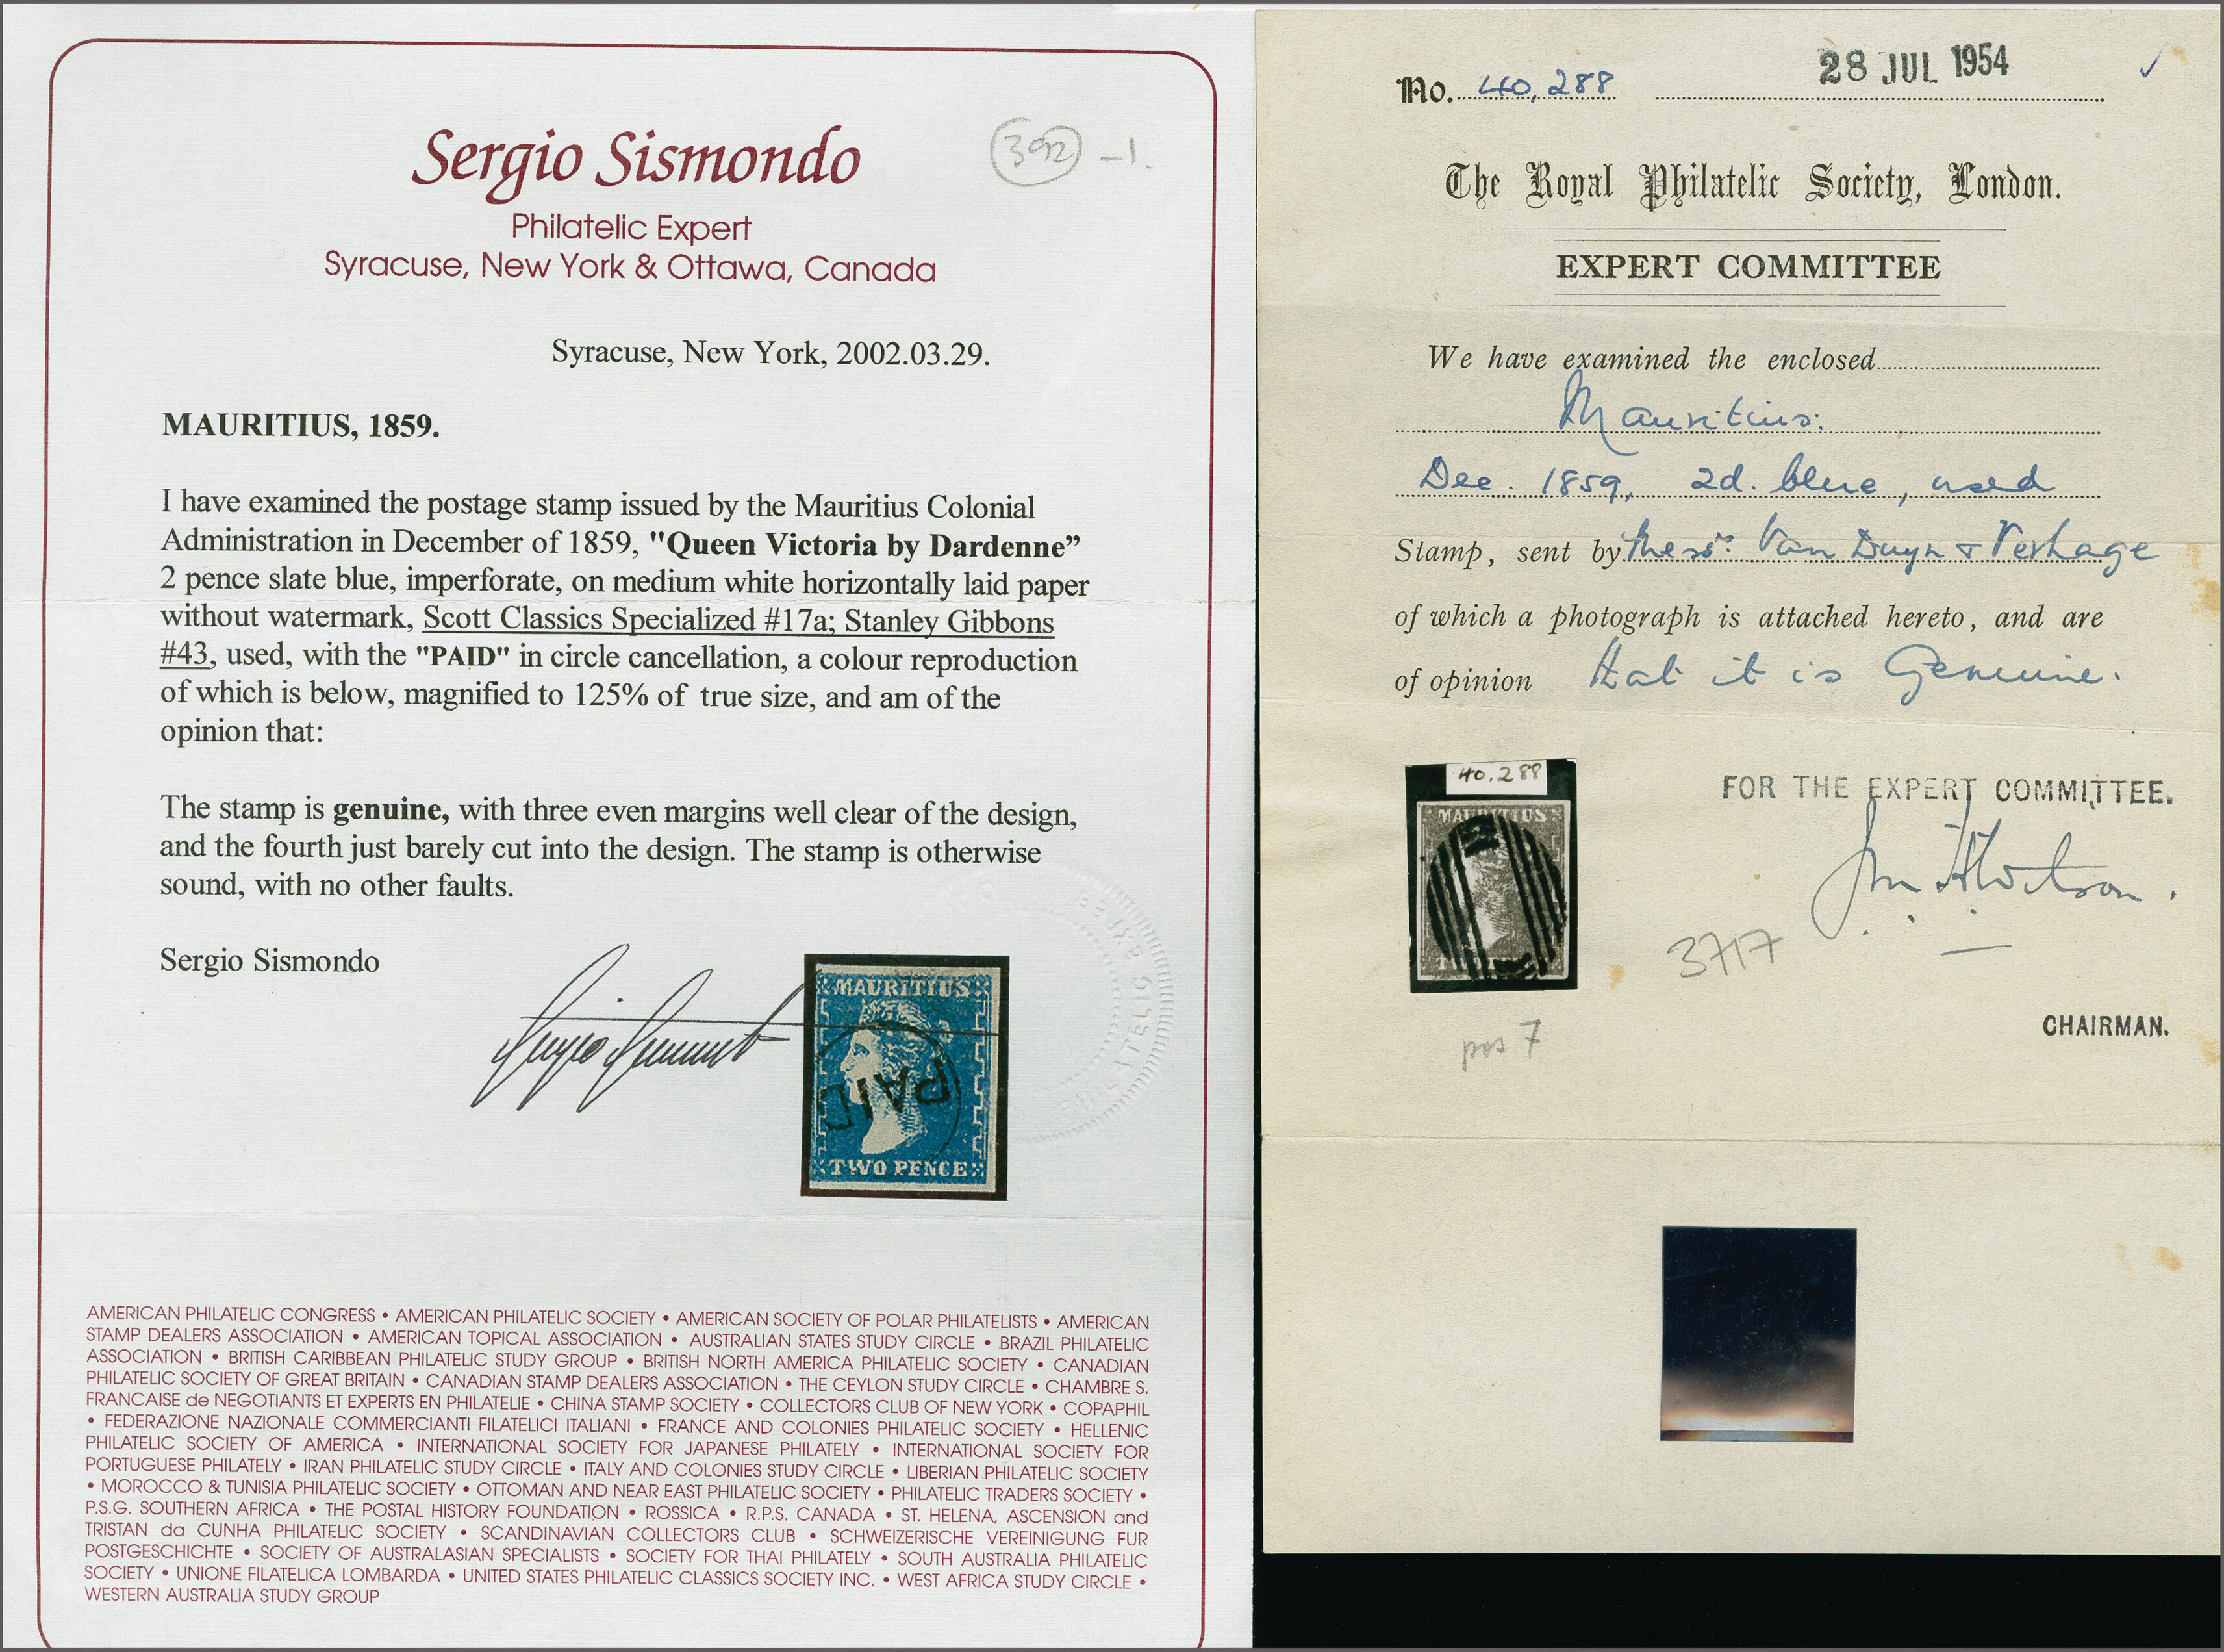 Sergio Sismondo
392 -1.
Philatelic Expert
Syracuse, New York & Ottawa, Canada
Syracuse, New York, 2002.03.29.
MAURITIUS, 1859.
I have examined the postage stamp issued by the Mauritius Colonial
Administration in December of 1859, "Queen Victoria by Dardenne”
2 pence slate blue, imperforate, on medium white horizontally laid paper
without watermark, Scott Classics Specialized #17a; Stanley Gibbons
#43, used, with the "PAID" in circle cancellation, a colour reproduction
of which is below, magnified to 125% of true size, and am of the
opinion that:
The stamp is genuine, with three even margins well clear of the design,
and the fourth just barely cut into the design. The stamp is otherwise
sound, with no other faults.
Sergio Sismondo
MAURITIUS
PAID
TWO PENCE
AMERICAN PHILATELIC CONGRESS • AMERICAN PHILATELIC SOCIETY • AMERICAN SOCIETY OF POLAR PHILATELISTS • AMERICAN
STAMP DEALERS ASSOCIATION • AMERICAN TOPICAL ASSOCIATION • AUSTRALIAN STATES STUDY CIRCLE • BRAZIL PHILATELIC
ASSOCIATION • BRITISH CARIBBEAN PHILATELIC STUDY GROUP • BRITISH NORTH AMERICA PHILATELIC SOCIETY • CANADIAN
PHILATELIC SOCIETY OF GREAT BRITAIN • CANADIAN STAMP DEALERS ASSOCIATION • THE CEYLON STUDY CIRCLE • CHAMBRE S.
FRANCAISE de NEGOTIANTS ET EXPERTS EN PHILATELIE • CHINA STAMP SOCIETY • COLLECTORS CLUB OF NEW YORK • COPAPHIL
• FEDERAZIONE NAZIONALE COMMERCIANTI FILATELICI ITALIANI • FRANCE AND COLONIES PHILATELIC SOCIETY • HELLENIC
PHILATELIC SOCIETY OF AMERICA • INTERNATIONAL SOCIETY FOR JAPANESE PHILATELY • INTERNATIONAL SOCIETY FOR
PORTUGUESE PHILATELY • IRAN PHILATELIC STUDY CIRCLE • ITALY AND COLONIES STUDY CIRCLE • LIBERIAN PHILATELIC SOCIETY
• MOROCCO & TUNISIA PHILATELIC SOCIETY • OTTOMAN AND NEAR EAST PHILATELIC SOCIETY • PHILATELIC TRADERS SOCIETY •
P.S.G. SOUTHERN AFRICA • THE POSTAL HISTORY FOUNDATION • ROSSICA • R.P.S. CANADA • ST. HELENA, ASCENSION and
TRISTAN da CUNHA PHILATELIC SOCIETY • SCANDINAVIAN COLLECTORS CLUB • SCHWEIZERISCHE VEREINIGUNG FUR
POSTGESCHICHTE • SOCIETY OF AUSTRALASIAN SPECIALISTS • SOCIETY FOR THAI PHILATELY • SOUTH AUSTRALIA PHILATELIC
SOCIETY • UNIONE FILATELICA LOMBARDA • UNITED STATES PHILATELIC CLASSICS SOCIETY INC. • WEST AFRICA STUDY CIRCLE •
WESTERN AUSTRALIA STUDY GROUP
No. 40,288 28 JUL 1954
The Royal Philatelic Society, London.
EXPERT COMMITTEE
We have examined the enclosed
Mauritius.
Dec. 1859, 2d. blue, used
Stamp, sent by Messrs. Van Duyn & Verhage
of which a photograph is attached hereto, and are
of opinion that it is Genuine.
40.288
FOR THE EXPERT COMMITTEE.
3717
CHAIRMAN.
pos 7